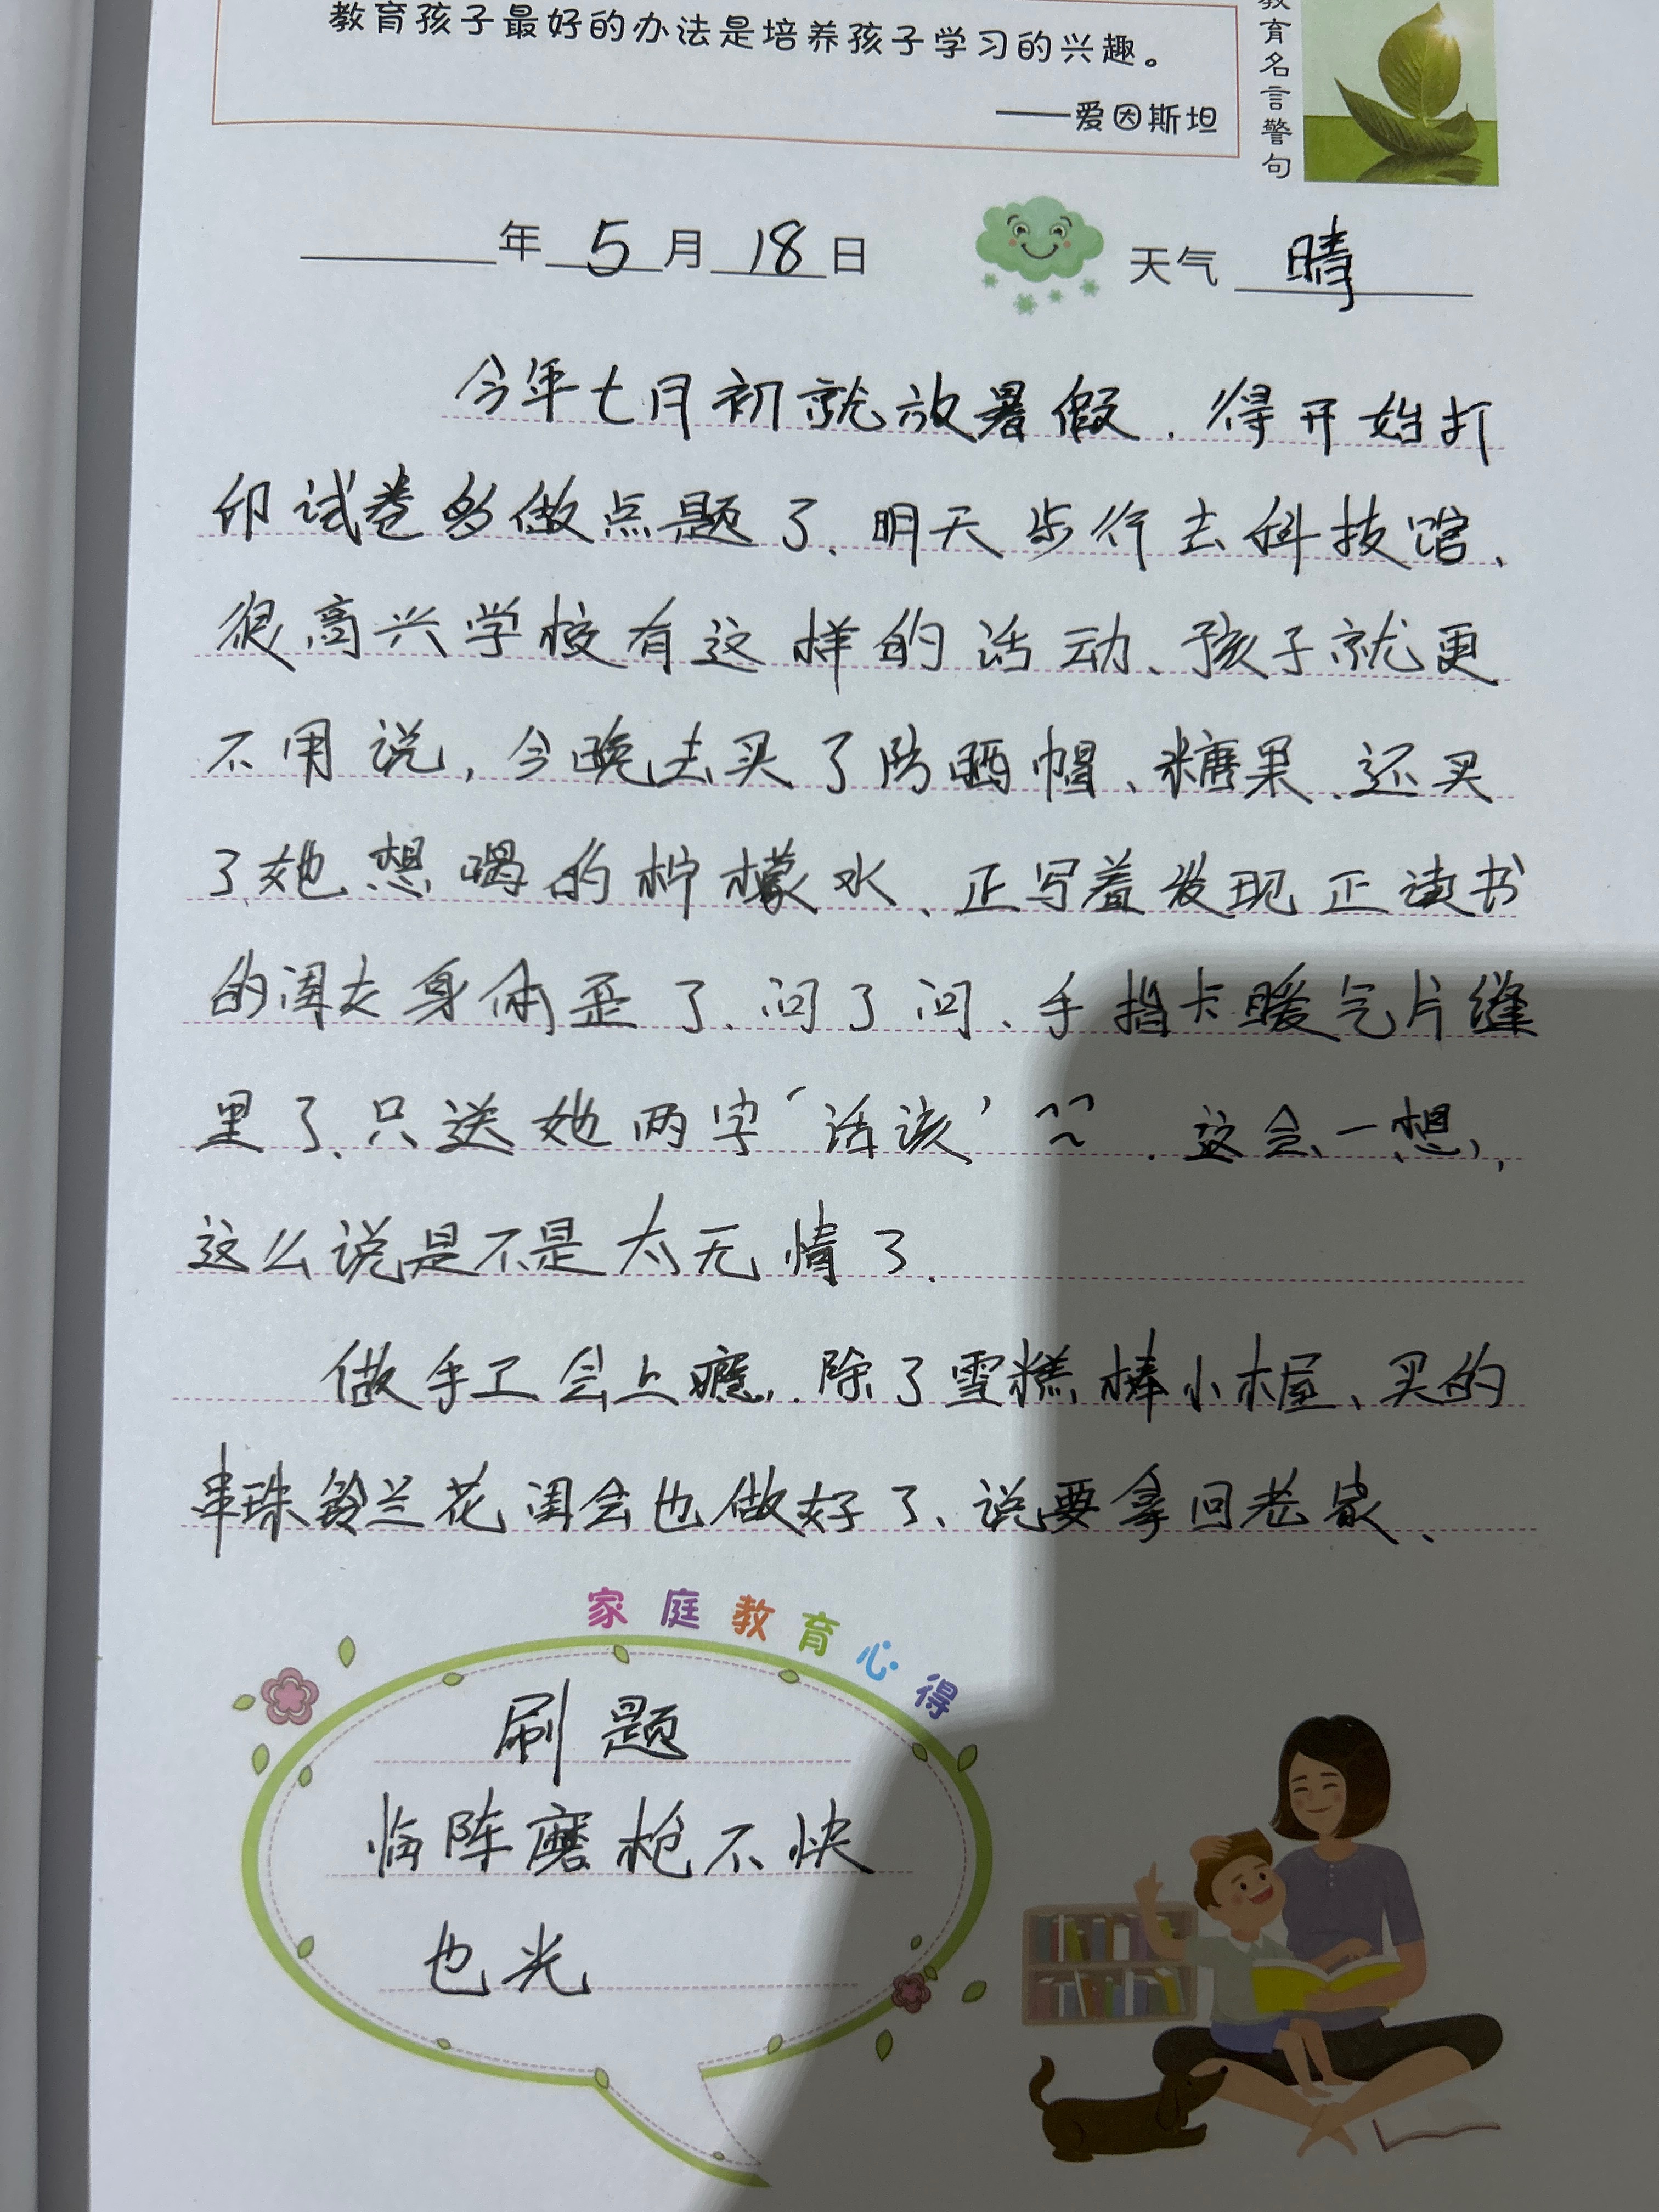 教育孩子最好的办法是培养孩子学习的兴趣。
——爱因斯坦
教育名言警句
年 5 月 18 日 天气 晴
今年七月初就放暑假.得开始打
印试卷多做点题了、明天步行去科技馆、
很高兴学校有这样的活动、孩子就更
不用说,今晚去买了防晒帽、糖果、还买
了她想喝的柠檬水、正写着发现正读书
的闺女身体歪了、问了问、手指卡暖气片缝
里了、只送她两字‘活该’.这会一想,
这么说是不是太无情了.
做手工会上瘾..除了雪糕棒小木屋、买的
串珠铃兰花闺会也做好了、说要拿回老家、
家庭教育心得
刷题
临阵磨枪不快
也光